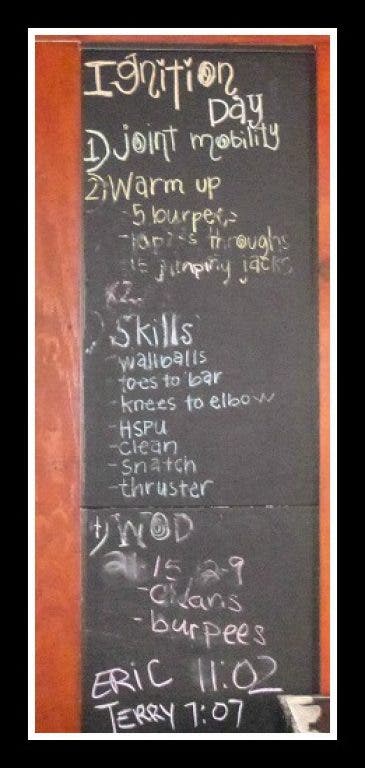 Ignition
Day
1) joint mobility
2) Warm up
- 5 burpees
- throughs
- 15 jumping jacks
x2
) Skills
- wallballs
- toes to bar
- knees to elbow
- HSPU
- clean
- snatch
- thruster
4) WOD
21-15-12-9
- cleans
- burpees
ERIC 11:02
TERRY 7:07